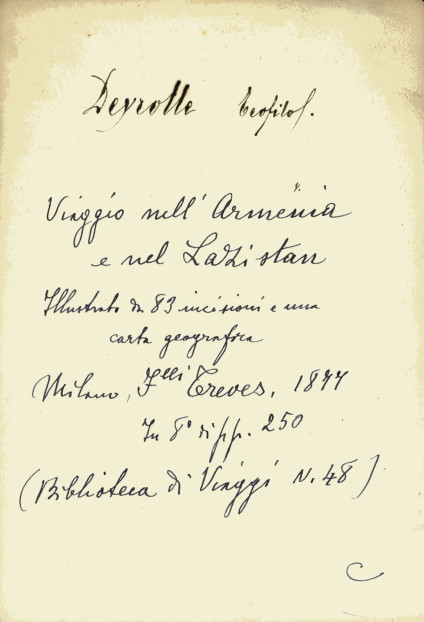 Deyrolle Teofilo.
Viaggio nell' Armenia
e nel Lazistan
Illustrato da 83 incisioni e una
carta geografica
Milano, F.lli Treves, 1877
In 8° di pp. 250
(Biblioteca di Viaggi N. 48)
C